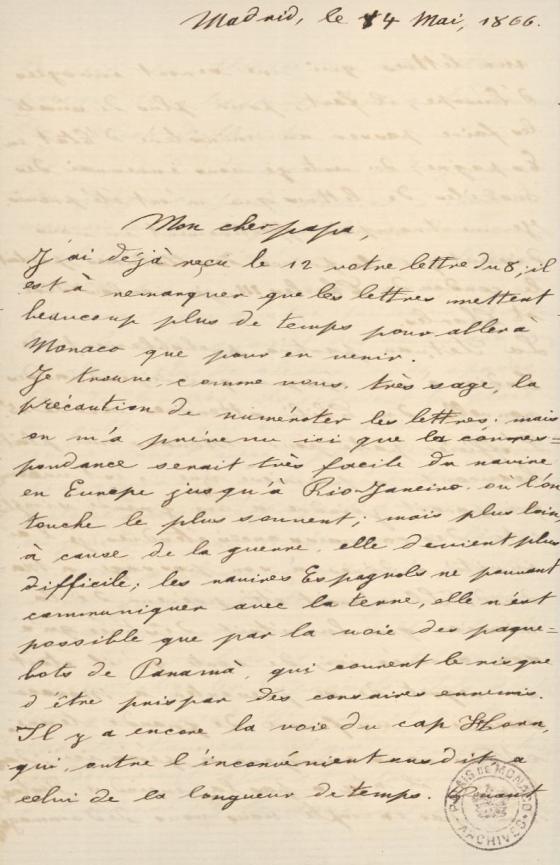 Madrid, le 14 Mai, 1866.
Mon cher papa,
J'ai déjà reçu le 12 votre lettre du 8, il
est à remarquer que les lettres mettent
beaucoup plus de temps pour aller à
Monaco que pour en venir.
Je trouve, comme vous, très sage, la
précaution de numéroter les lettres; mais
on m'a prévenu ici que la corres=
pondance serait très facile du navire
en Europe jusqu'à Rio-Janeiro où l'on
touche le plus souvent; mais plus loin
à cause de la guerre, elle devient plus
difficile; les navires Espagnols ne pouvant
communiquer avec la terre, elle n'est
possible que par la voie des paque=
bots de Panamà, qui courent le risque
d'être pris par des corsaires ennemis.
Il y a encore la voie du cap Horn,
qui, outre l'inconvénient susdit, a
celui de la longueur de temps. Quant
PALAIS DE MONACO
ARCHIVES